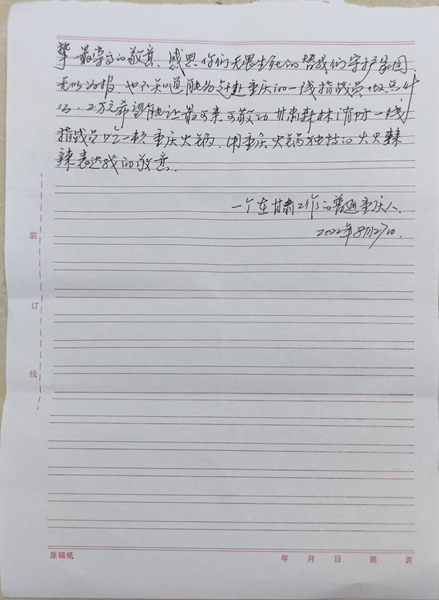 挚、最崇高的敬意，感恩你们无畏生死的替我们守护家园，
无以为报，也不知道能为赶赴重庆的一线指战员做点什
么，2万元希望能让最可亲可敬的甘肃森林消防一线
指战员吃一顿重庆火锅，用重庆火锅独特的火火辣
辣表达我的敬意。
一个在甘肃工作的普通重庆人
2022年8月27日.
装
订
线
原稿纸
年 月 日 第 页